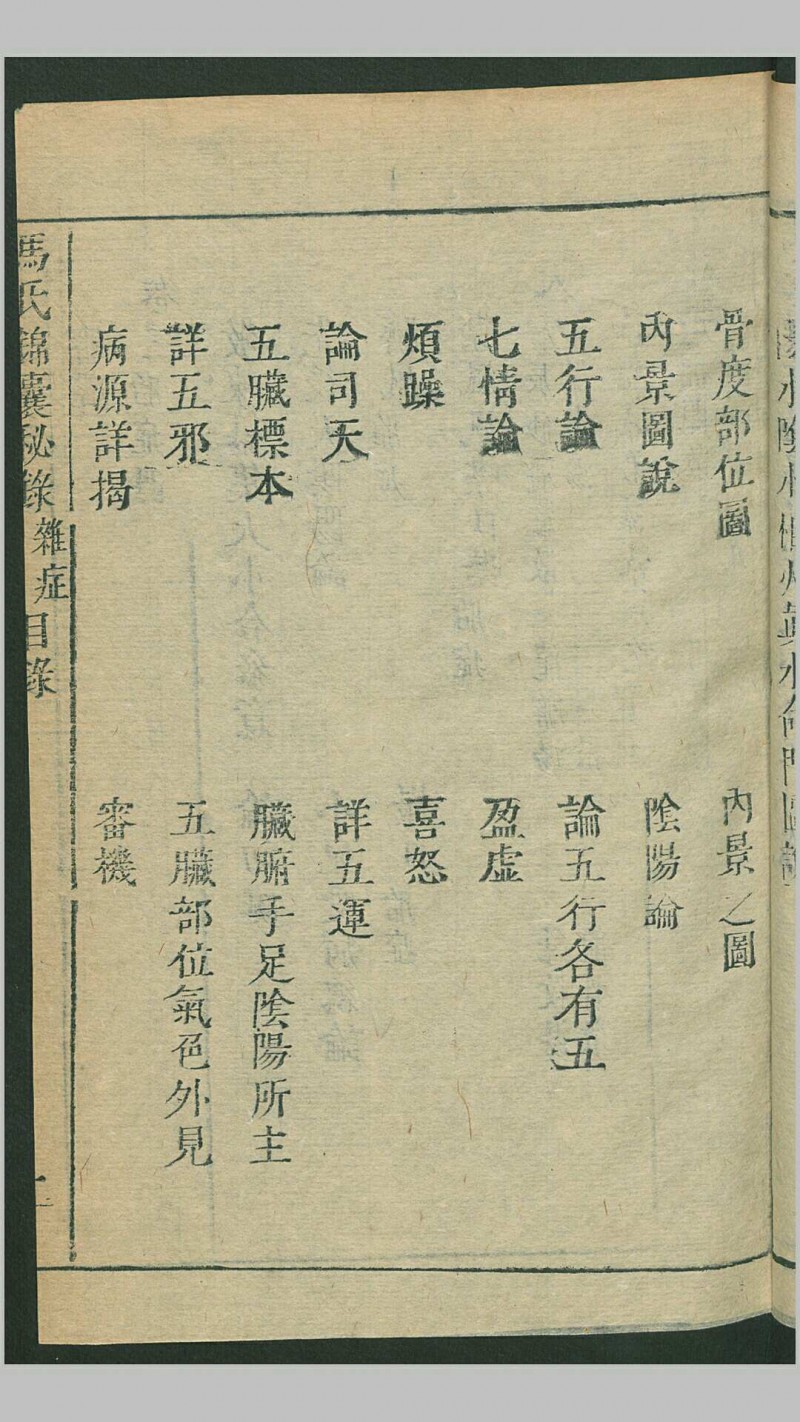 骨度部位圖
內景之圖
內景圖說
陰陽論
五行論
論五行各有五
七情論
盈虛
煩躁
喜怒
論司天
詳五運
五臟標本
臟腑手足陰陽所主
詳五邪
五臟部位氣色外見
病源詳揭
審機
馮氏錦囊秘錄
雜症
目錄